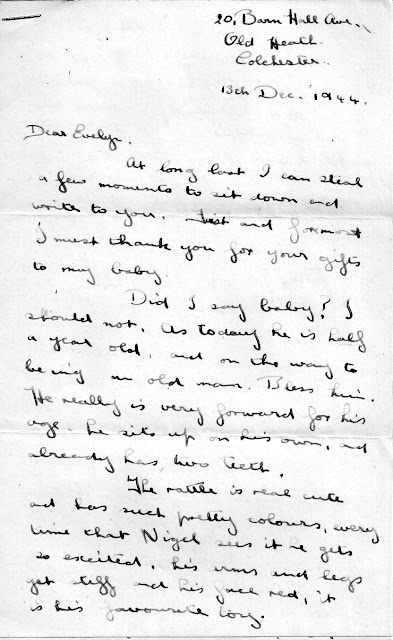 20, Barn Hall Ave.,
Old Heath.
Colchester.
13th Dec. 1944.
Dear Evelyn.
At long last I can steal
a few moments to sit down and
write to you. First and foremost
I must thank you for your gifts
to my baby.
Did I say baby? I
should not, as today he is half
a year old, and on the way to
being an old man. Bless him.
He really is very forward for his
age. he sits up on his own, and
already has, two teeth.
The rattle is real cute
and has such pretty colours, every
time that Nigel sees it he gets
so excited. his arms and legs
get stiff and his face red, it
is his favourite toy.